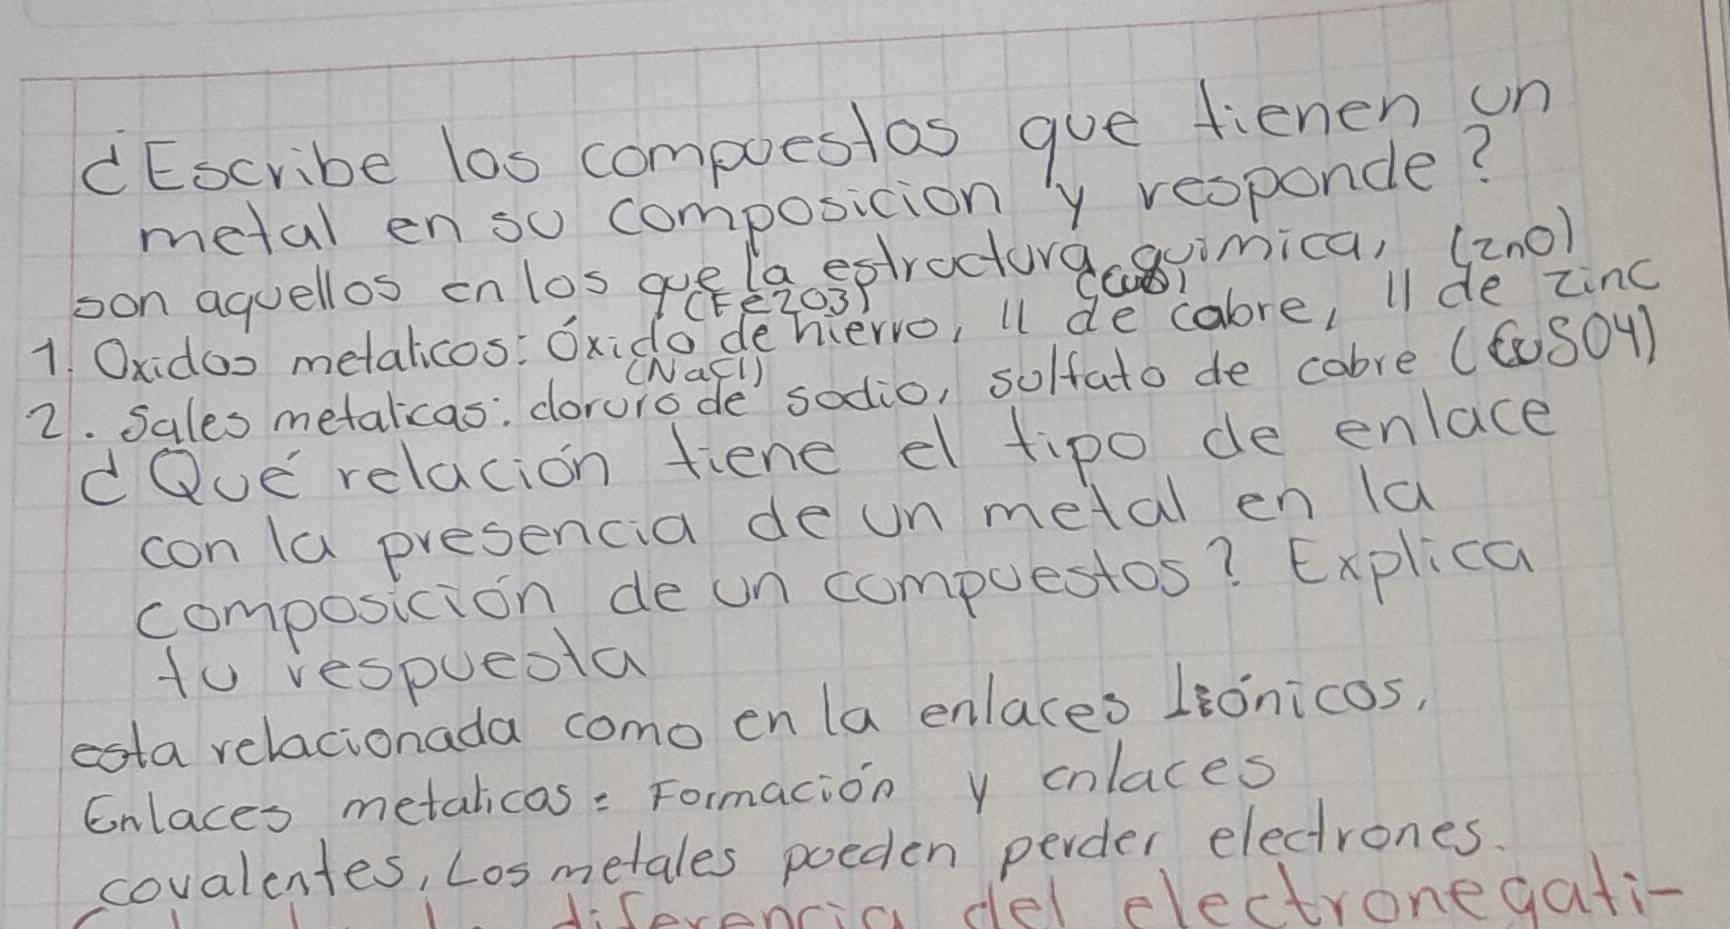 ¿Escribe los compuestos que tienen un
metal en su composicion y responde?
son aquellos en los que la estructura quimica,
(Fe2O3) (CuO) (ZnO)
1. Oxidos metalicos: Óxido de hierro, 11 de cabre, 11 de zinc
(NaCl)
2. Sales metalicas: cloruro de sodio, sulfato de cobre (CuSO4)
¿Qué relación tiene el tipo de enlace
con la presencia de un metal en la
composición de un compuestos? Explica
tu respuesta
esta relacionada como en la enlaces Iónicos,
Enlaces metalicos: Formación y enlaces
covalentes, Los metales pueden perder electrones.
diferencia del electronegati-